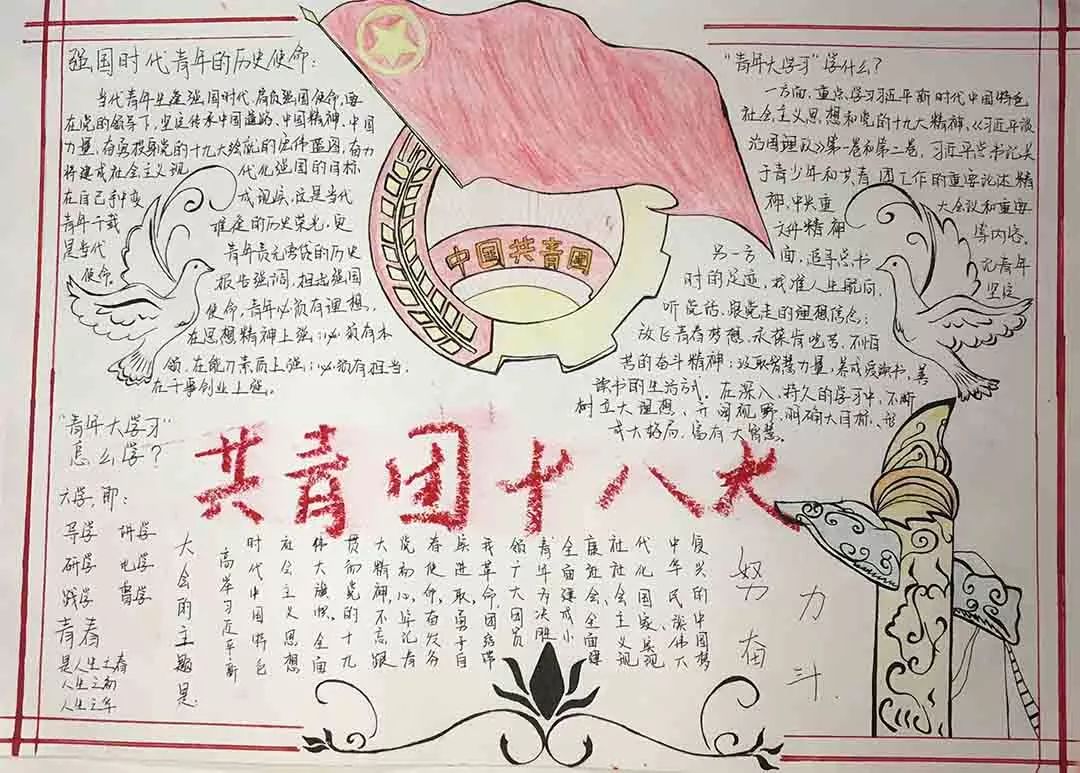 强国时代青年的历史使命:
当代青年生逢强国时代、肩负强国使命,要
在党的领导下,坚定传承中国道路、中国精神、中国
力量,奋勇投身党的十九大绘就的宏伟蓝图,奋力
将建成社会主义现代化强国的目标
在自己手中变成现实,这是当代
青年千载难逢的历史荣光,更
是当代青年责无旁贷的历史
使命。报告强调,担起强国
使命,青年必须有理想,
在思想精神上强;必须有本
领,在能力素质上强;必须有担当,
在干事创业上强。
中国共青团
"青年大学习"学什么?
一方面,重点学习习近平新时代中国特色
社会主义思想和党的十九大精神,《习近平谈
治国理政》第一卷和第二卷,习近平总书记关
于青少年和共青团工作的重要论述精
神,中央重大会议和重要
文件精神等内容。
另一方面,追寻总书记青年
时的足迹,找准人生航向,坚定
听党话、跟党走的理想信念;
放飞青春梦想,永葆肯吃苦、不怕
苦的奋斗精神;汲取智慧力量,养成爱读书,善
读书的生活方式。在深入、持久的学习中,不断
树立大理想、开阔视野、明确大目标、形
成大格局、富有大智慧。
共青团十八大
"青年大学习"
怎么学?
六学,即:
导学 讲学
研学 电学
践学 青学
青春
是人生之春
人生之
人生之华
大会的主题是:
高举习近平新
时代中国特色
社会主义思想
伟大旗帜,全面
贯彻党的十九
大精神,不忘跟
党初心,牢记青
春使命,奋发务
实进取,勇于自
我革命,团结带
领广大团员
青年为决胜
全面建成小
康社会、全面建
社社会主义现
代化国家、实现
中华民族伟大
复兴的中国梦
努力奋斗